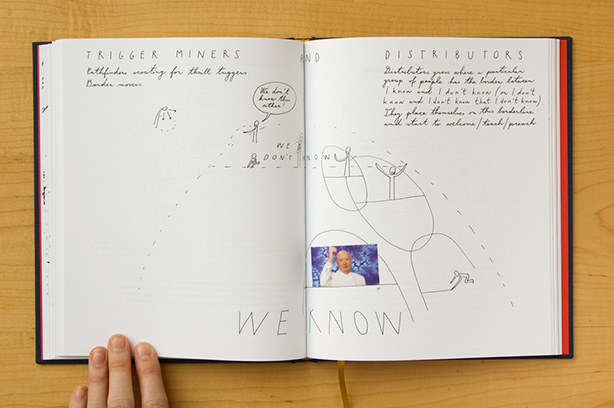 TRIGGER MINERS AND DISTRIBUTORS
Pathfinders scouting for thrill triggers
Border movers
Distributors guess where a particular
group of people has the border between
I know and I don't know (or I don't
know and I don't know that I don't know)
They place themselves on this borderline
and start to welcome/teach/preach
We don't
know this
either!
WE
DON'T KNOW
WE KNOW